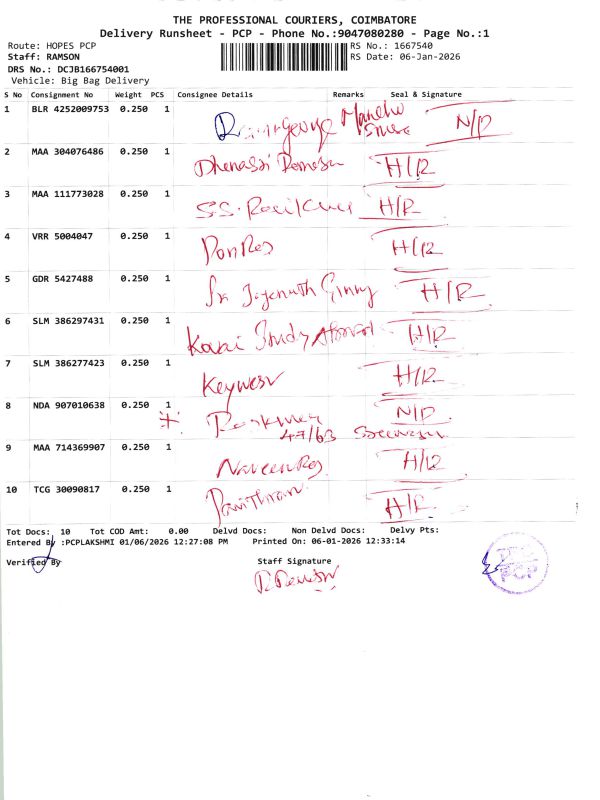 THE PROFESSIONAL COURIERS, COIMBATORE
Delivery Runsheet - PCP - Phone No.:9047080280 - Page No.:1
Route: HOPES PCP RS No.: 1667540
Staff: RAMSON RS Date: 06-Jan-2026
DRS No.: DCJB166754001
Vehicle: Big Bag Delivery
S No Consignment No Weight PCS Consignee Details Remarks Seal & Signature
1 BLR 4252009753 0.250 1 George N/D
2 MAA 304076486 0.250 1 H/R
3 MAA 111773028 0.250 1 S.S. H/R
4 VRR 5004047 0.250 1 H/R
5 GDR 5427488 0.250 1 H/R
6 SLM 386297431 0.250 1 H/R
7 SLM 386277423 0.250 1 H/R
8 NDA 907010638 0.250 1 N/D
47/63
9 MAA 714369907 0.250 1 H/R
10 TCG 30090817 0.250 1 H/R
Tot Docs: 10 Tot COD Amt: 0.00 Delvd Docs: Non Delvd Docs: Delvy Pts:
Entered By :PCPLAKSHMI 01/06/2026 12:27:08 PM Printed On: 06-01-2026 12:33:14
Verified By Staff Signature
PCP